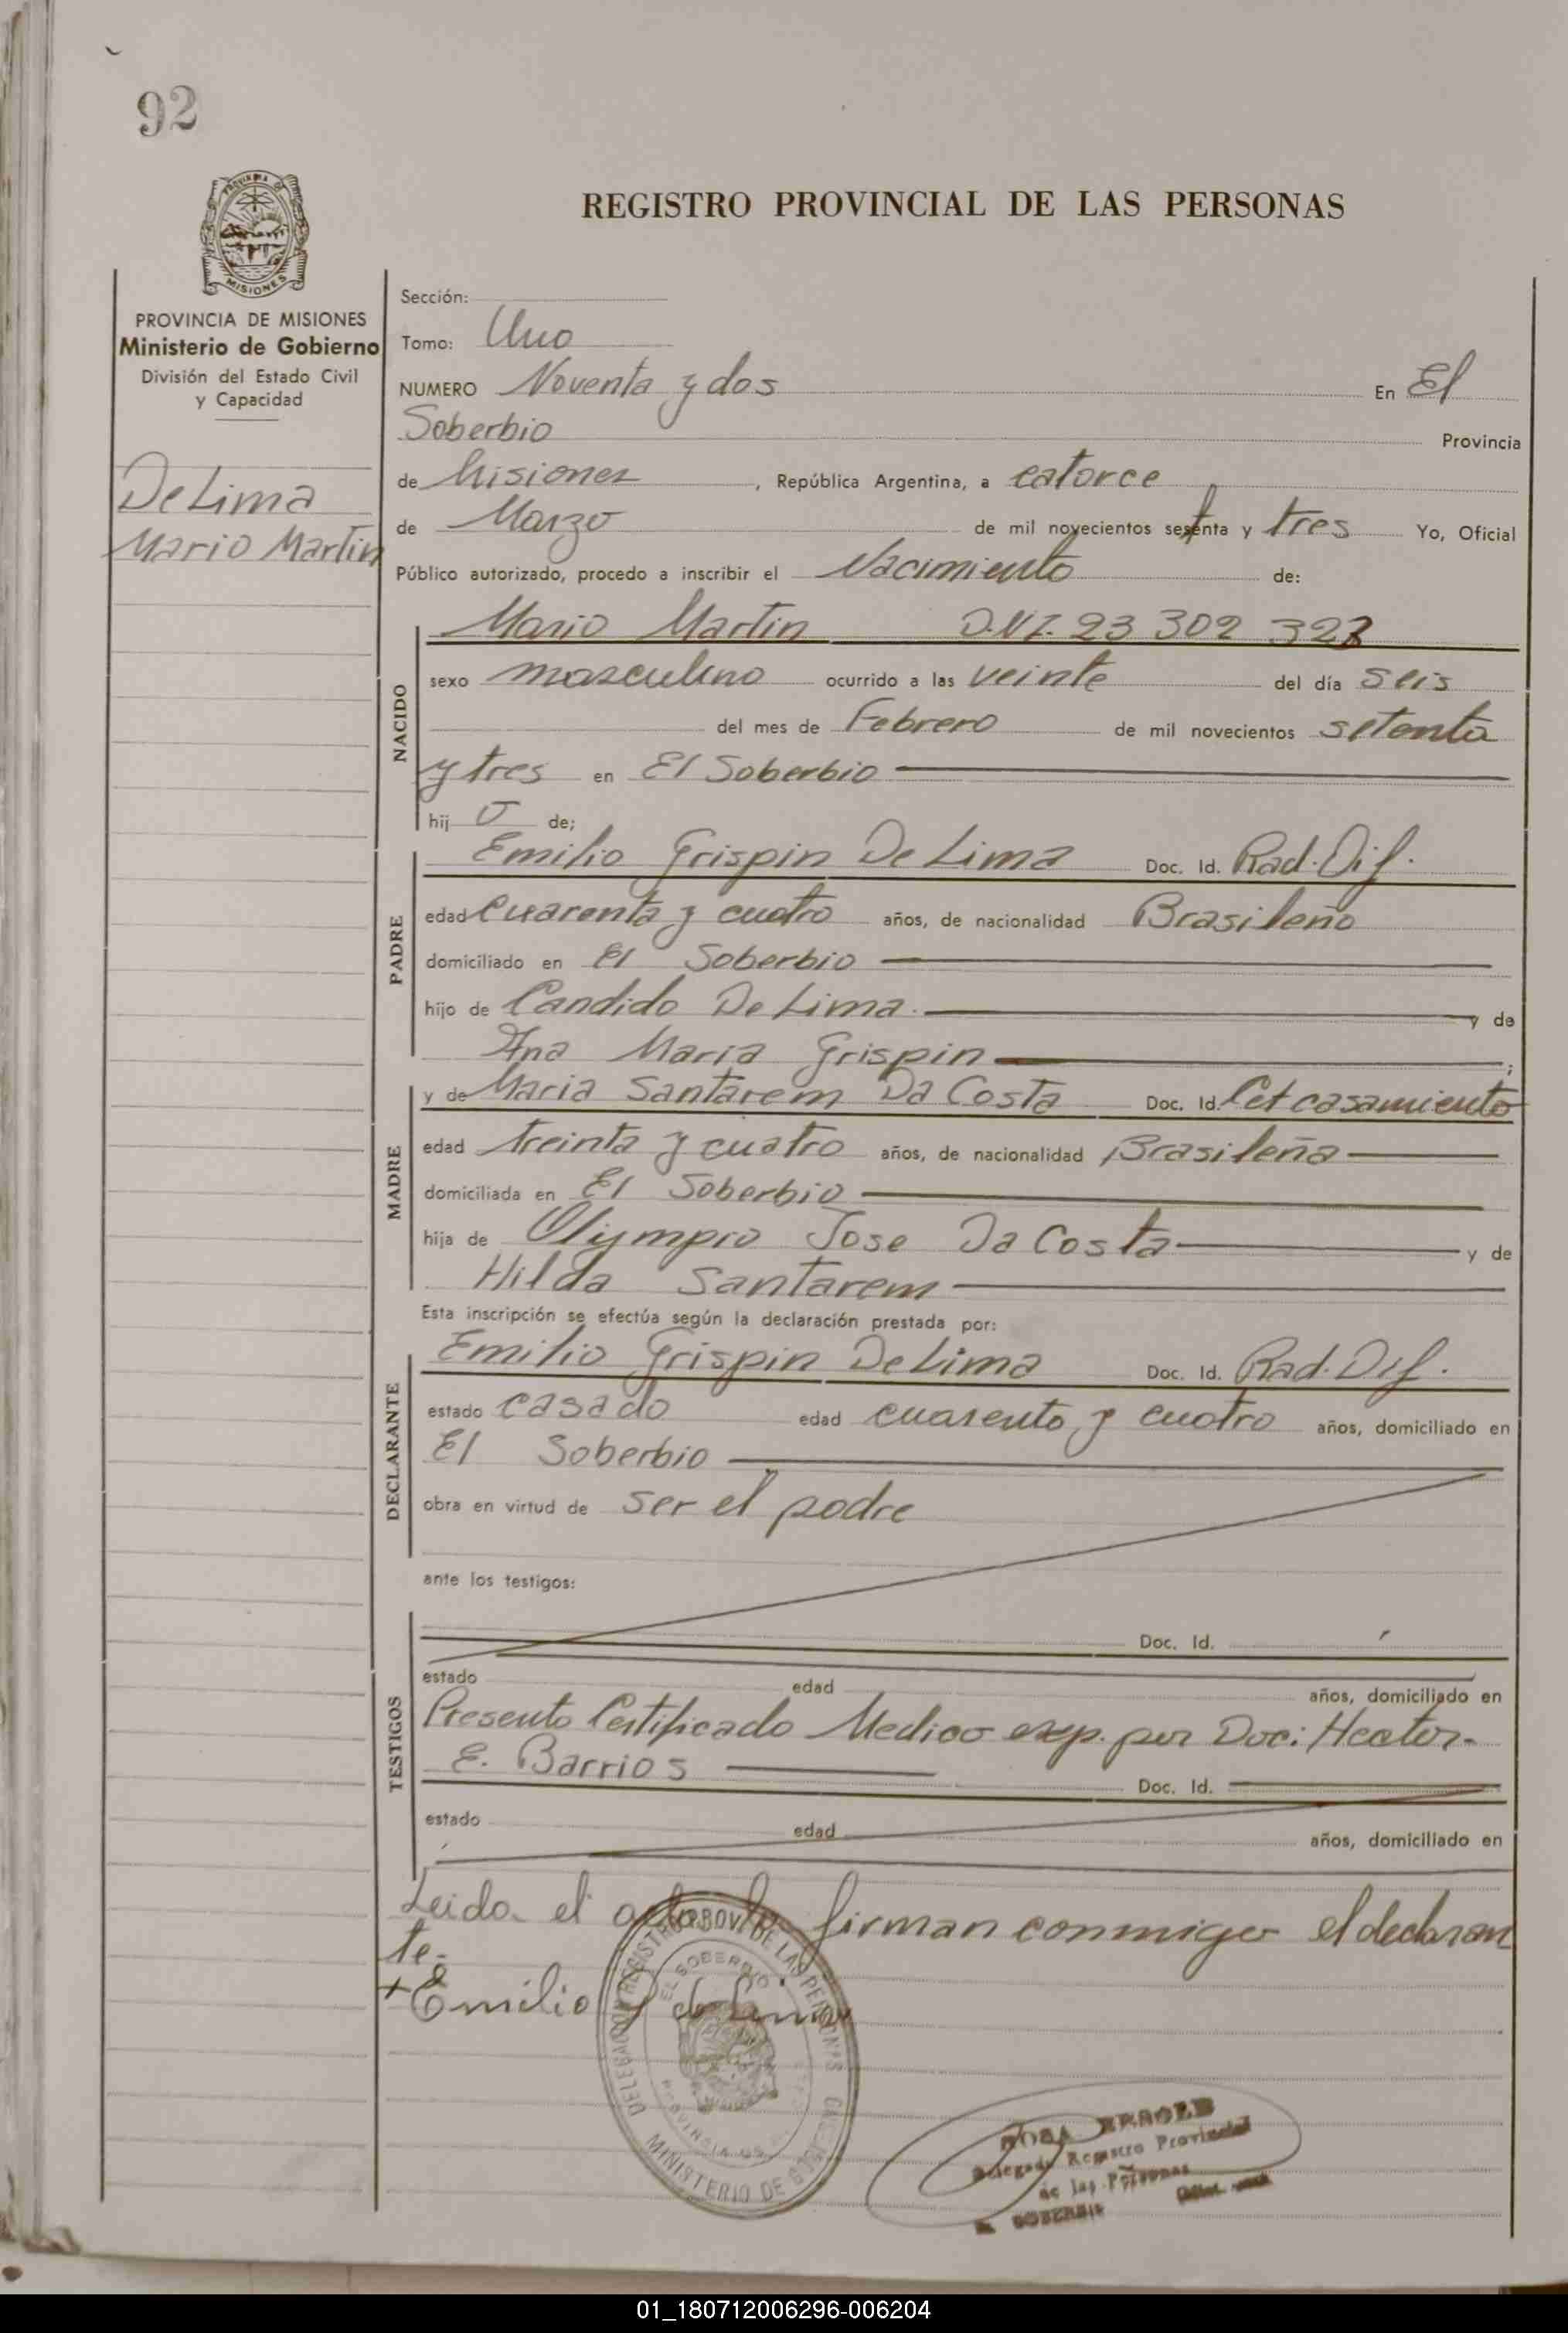 92
PROVINCIA DE
MISIONES
REGISTRO PROVINCIAL DE LAS PERSONAS
PROVINCIA DE MISIONES
Ministerio de Gobierno
División del Estado Civil
y Capacidad
De Lima
Mario Martin
Sección:
Tomo: Uno
NUMERO Noventa y dos En El
Soberbio Provincia
de Misiones , República Argentina, a catorce
de Marzo de mil novecientos setenta y tres Yo, Oficial
Público autorizado, procedo a inscribir el Nacimiento de:
NACIDO
Mario Martin D.N.I. 23 302 323
sexo masculino ocurrido a las veinte del día seis
del mes de Febrero de mil novecientos setenta
y tres en El Soberbio
hij o de;
PADRE
Emilio Grispin De Lima Doc. Id. Rad. Dif.
edad cuarenta y cuatro años, de nacionalidad Brasileño
domiciliado en El Soberbio
hijo de Candido De Lima. y de
Ana Maria Grispin ;
MADRE
y de Maria Santarem Da Costa Doc. Id. Cet casamiento
edad treinta y cuatro años, de nacionalidad Brasileña
domiciliada en El Soberbio
hija de Olympio Jose Da Costa y de
Hilda Santarem
Esta inscripción se efectúa según la declaración prestada por:
DECLARANTE
Emilio Grispin De Lima Doc. Id. Rad. Dif.
estado casado edad cuarento y cuatro años, domiciliado en
El Soberbio
obra en virtud de ser el padre
ante los testigos:
TESTIGOS
Doc. Id.
estado edad años, domiciliado en
Presento Certificado Medico exp. por Doc: Hector.
E. Barrios Doc. Id.
estado edad años, domiciliado en
Leida el acta la firman conmigo el declaran
te.
+ Emilio G de Lima
DELEGACION REGISTRO PROV. DE LAS PERSONAS
EL SOBERBIO
PROVINCIA DE
MINISTERIO DE
Delegada Registro Provincial
de las Personas
SOBERBIO
01_180712006296-006204